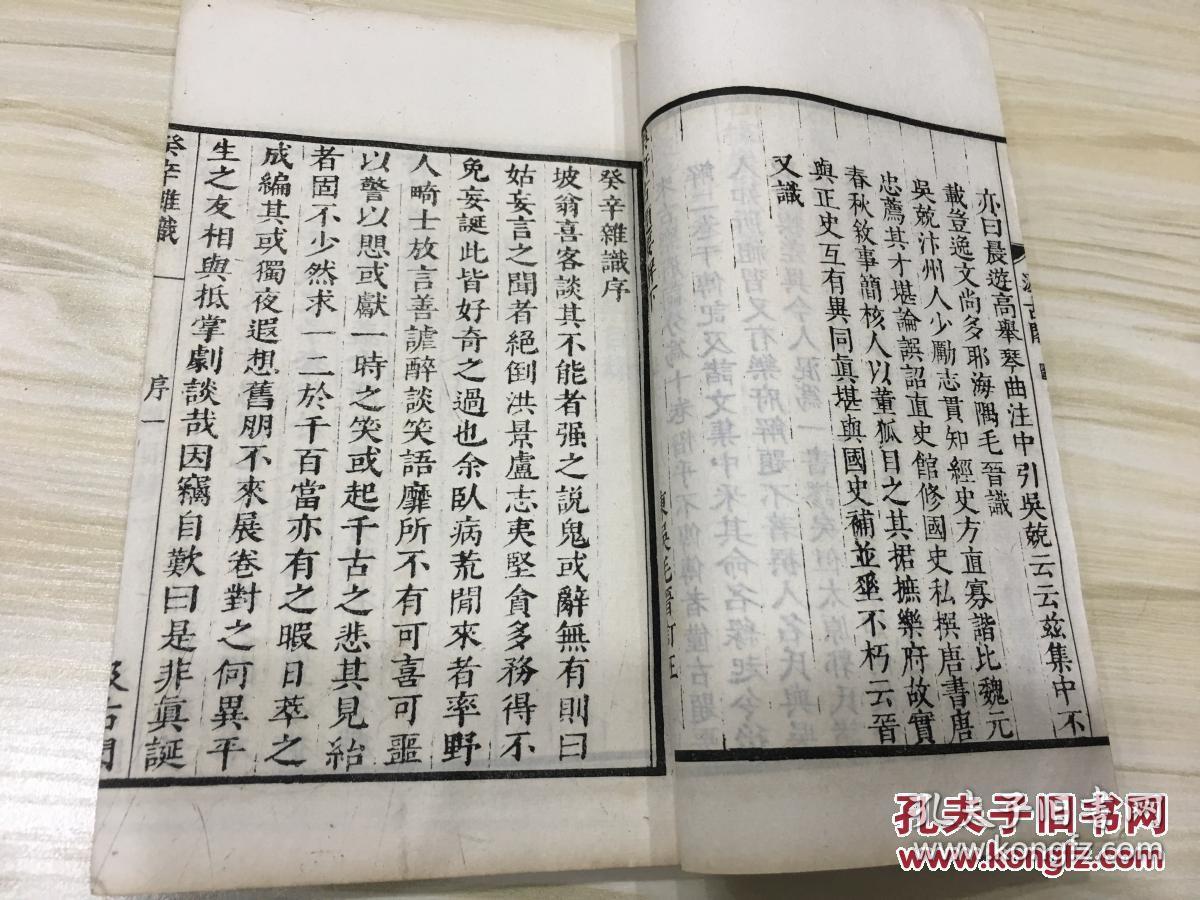 亦曰晨遊高舉琴曲注中引吳兢云云茲集中不
載豈逸文尚多耶海隅毛晉識
吳兢汴州人少勵志貫知經史方直寡諧比魏元
忠薦其才堪論譔詔直史館修國史私撰唐書唐
春秋敘事簡核人以董狐目之其捃摭樂府故實
與正史互有異同眞堪與國史補並埀不朽云晉
又識
癸辛雜識序
坡翁喜客談其不能者强之說鬼或辭無有則曰
姑妄言之聞者絕倒洪景盧志夷堅貪多務得不
免妄誕此皆好奇之過也余臥病荒閒來者率野
人畸士放言善謔醉談笑語靡所不有可喜可噩
以警以思或獻一時之笑或起千古之悲其見紿
者固不少然求一二於千百當亦有之暇日萃之
成編其或獨夜遐想舊朋不來展卷對之何異平
生之友相與抵掌劇談哉因竊自歎曰是非眞誕
癸辛雜識
序一
汲古閣
孔夫子旧书网
www.kongfz.com